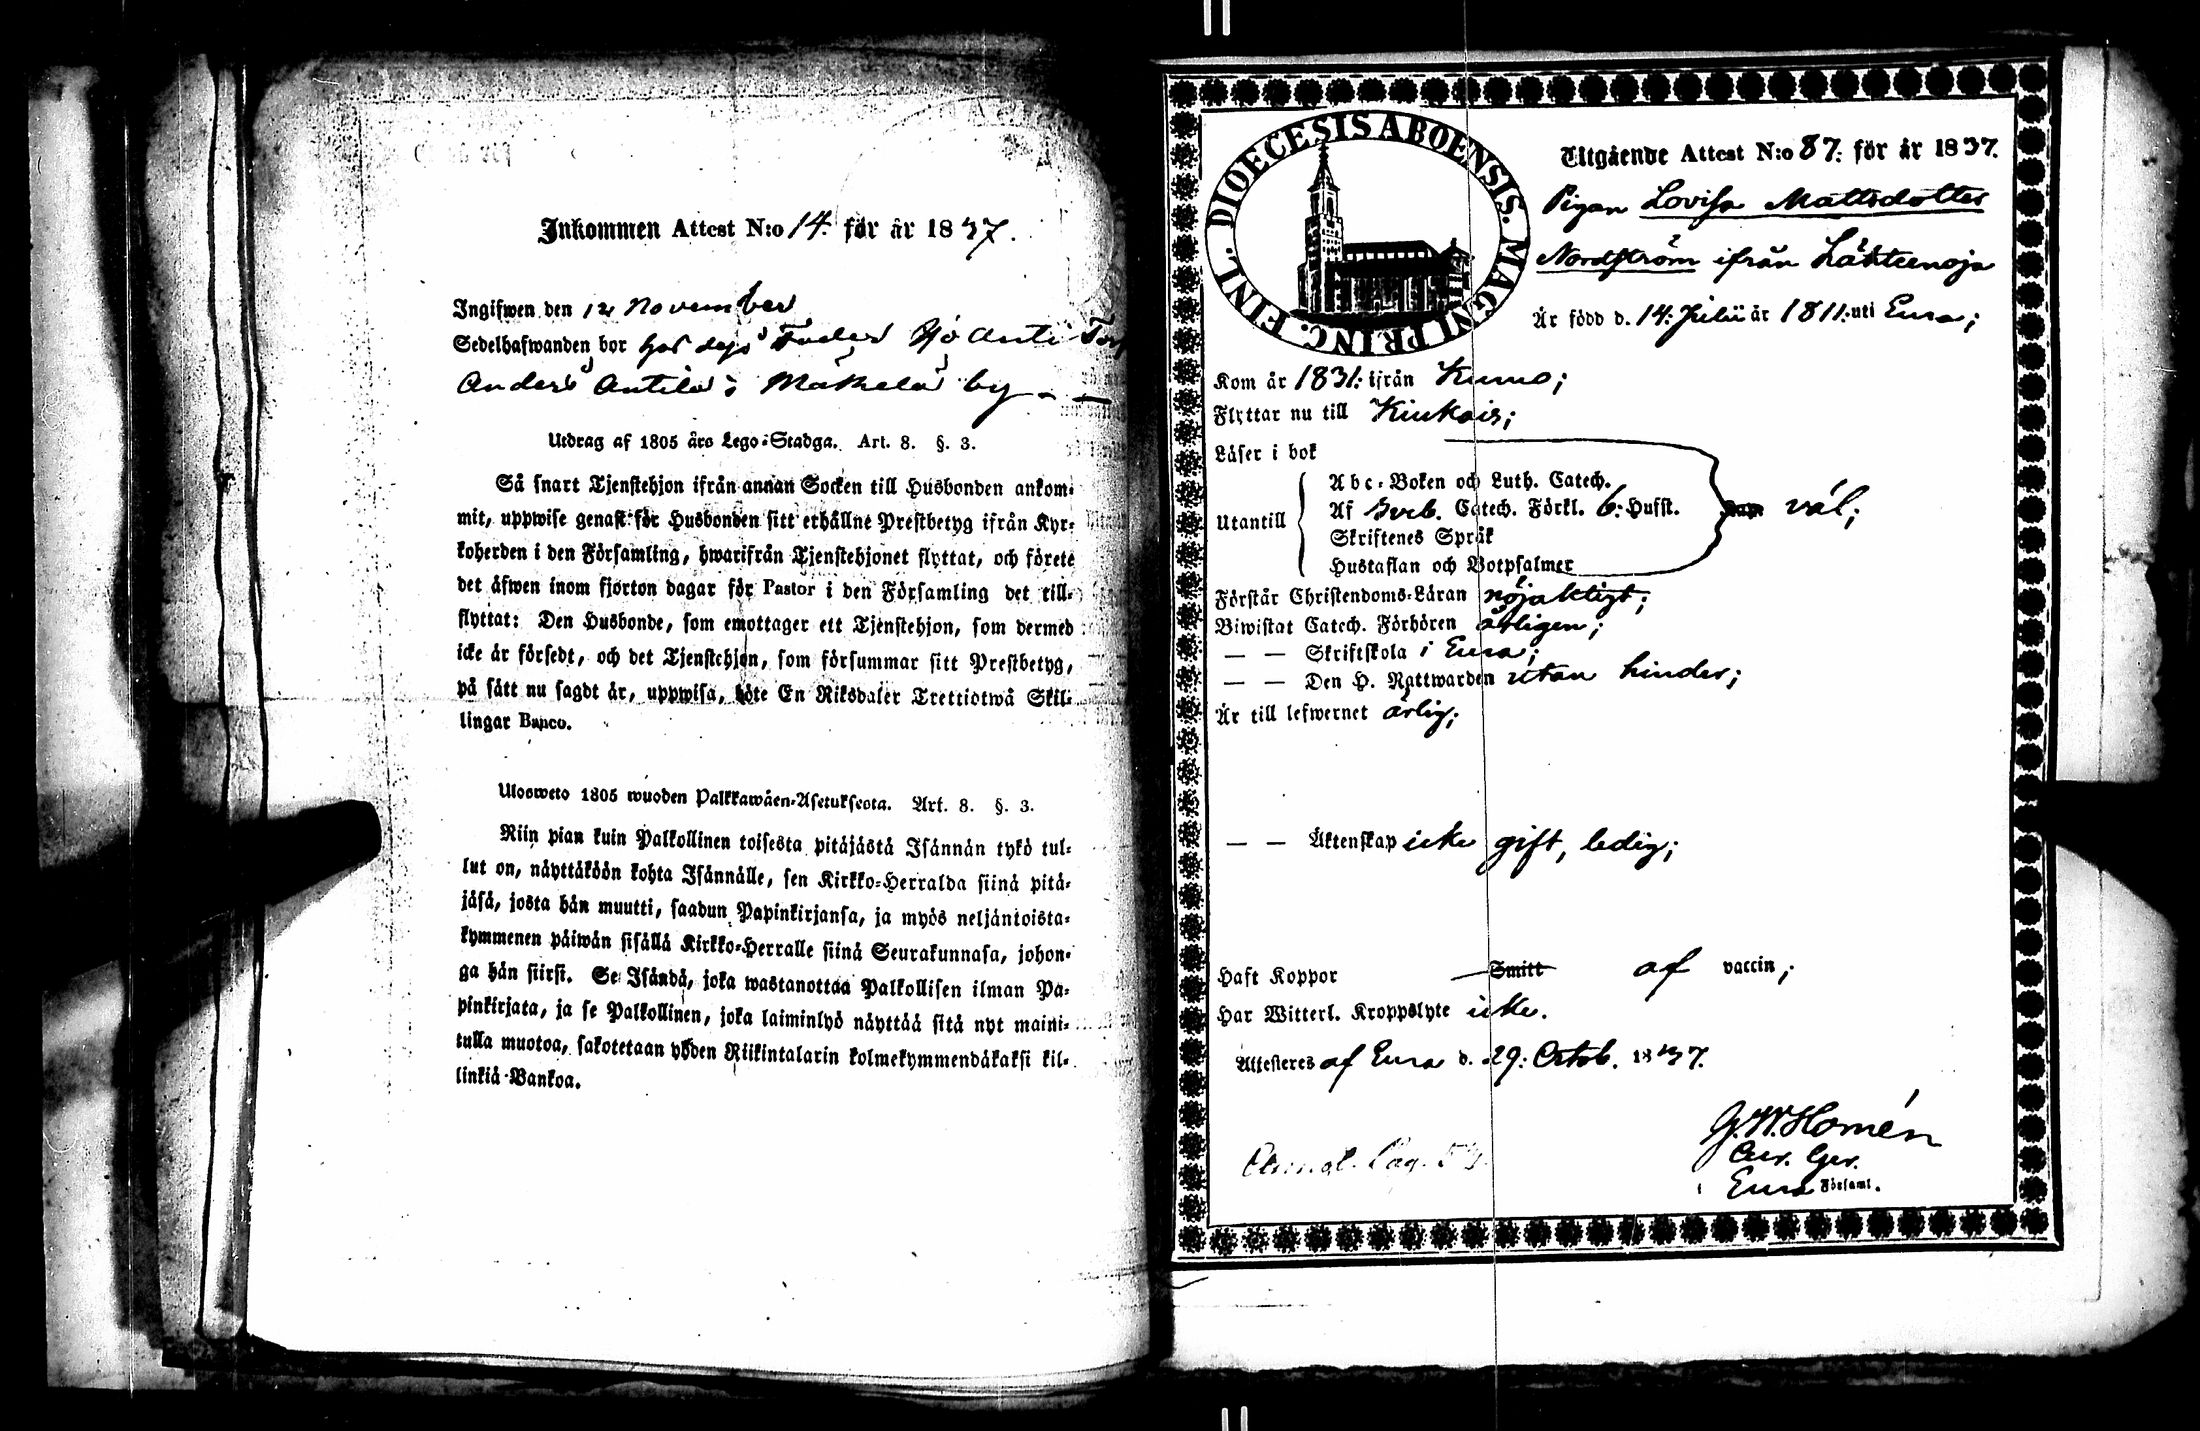 Inkommen Attest N:o 14. för år 1837.
Ingifwen den 12 November
Sedelhafwanden bor hos dess Fader
Anders Antila i Mäkelä by - -
Utdrag af 1805 års Lego-Stadga. Art. 8. §. 3.
Så snart Tjenstehjon ifrån annan Socken till Husbonden ankom-
mit, uppwise genast för Husbonden sitt erhållne Prestbetyg ifrån Kyr-
koherden i den Församling, hwarifrån Tjenstehjonet flyttat, och förete
det äfwen inom fjorton dagar för Pastor i den Församling det till-
flyttat: Den Husbonde, som emottager ett Tjenstehjon, som dermed
icke är försedt, och det Tjenstehjon, som försummar sitt Prestbetyg,
på sätt nu sagdt är, uppwisa, böte En Riksdaler Trettiotwå Skil-
lingar Banco.
Ulosweto 1805 wuoden Palkkawäen-Asetuksesta. Art. 8. §. 3.
Niin pian kuin Palkollinen toisesta pitäjästä Isännän tykö tul-
lut on, näyttäköön kohta Isännälle, sen Kirkko-Herralda siinä pitä-
jäsä, josta hän muutti, saadun Papinkirjansa, ja myös neljäntoista-
kymmenen päiwän sisällä Kirkko-Herralle siinä Seurakunnasa, johon-
ga hän siirsi. Se Isändä, joka wastanottaa Palkollisen ilman Pa-
pinkirjata, ja se Palkollinen, joka laiminlyö näyttää sitä nyt maini-
tulla muotoa, sakotetaan yhden Riikintalarin kolmekymmendäkaksi kil-
linkiä Bankoa.
DIOECESIS ABOENSIS. MAGNI PRINC. FINL.
Utgående Attest N:o 87: för år 1837.
Pigan Lovisa Mattsdotter
Nordström ifrån
Är född d. 14: Julii år 1811: uti Eura;
Kom år 1831: ifrån Kumo;
Flyttar nu till Kiukais;
Läser i bok
Utantill
Abc-Boken och Luth. Catech.
Af Sveb. Catech. Förkl. 6: Hufst.
Skriftenes Språk
Hustaflan och Botpsalmer
väl;
Förstår Christendoms-Läran nöjaktigt;
Biwistat Catech. Förhören årligen;
— — Skriftskola i Eura;
— — Den H. Nattwarden utan hinder;
Är till lefwernet ärlig;
— — Äktenskap icke gift, ledig;
Haft Koppor Smitt af vaccin;
Har Witterl. Kroppslyte icke.
Attesteres af Eura d. 29: Octob. 1837.
G. W. Homén
Eura Församl.